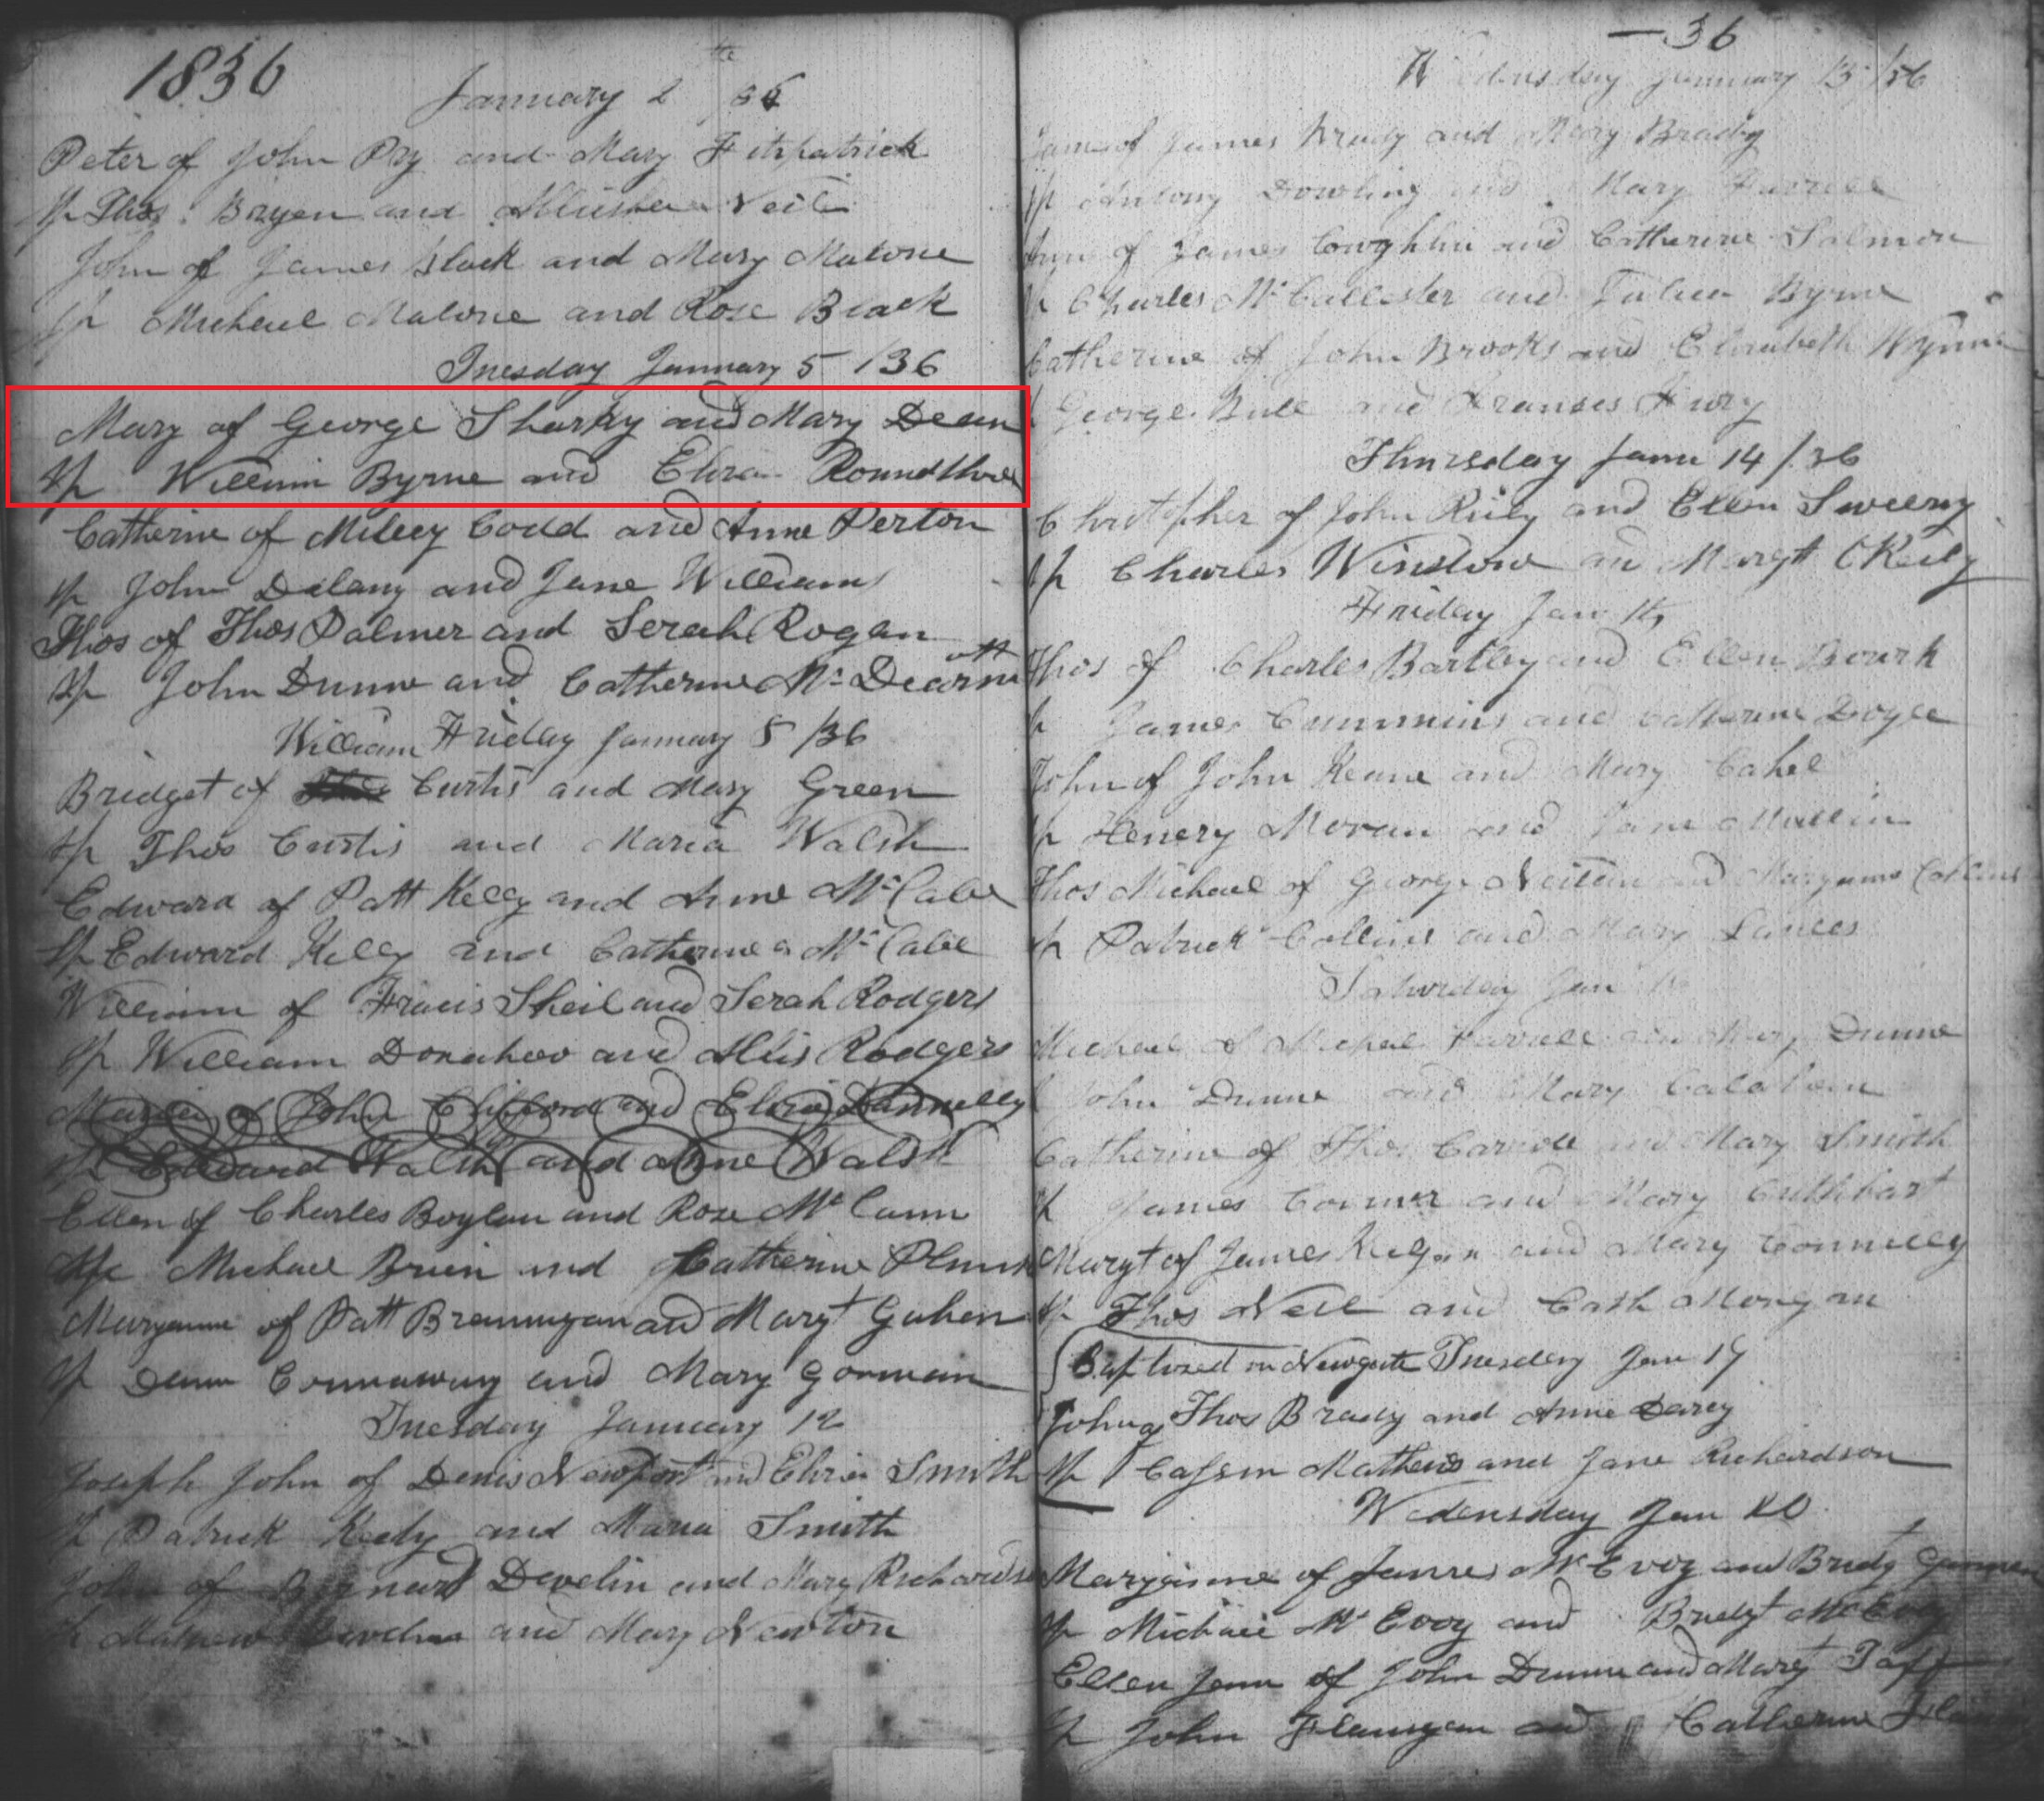 1836
January 2 36
Peter of John Pry and Mary Fitzpatrick
Sp Thos Bryen and Neil
John of James Black and Mary Malone
Sp Micheael Malone and Rose Black
Tuesday January 5 / 36
Mary of George Sharky and Mary Dean
Sp William Byrne and Eliza
Catherine of Miley Codd and Anne Perton
Sp John Delany and Jane Williams
Thos of Thos Palmer and Serah Rogan
Sp John Dunne and Catherine Mc Dearmott
William Friday January 8 /36
Bridget of Curtis and Mary Green
Sp Thos Curtis and Maria Walsh
Edward of Patt Kelly and Anne Mc Cabe
Sp Edward Kelly and Catherine Mc Cabe
William of Fracis Sheil and Serah Rodgers
Sp William Donahoo and Allis Rodgers
Maria of John Clifford and Eliza Donnelly
Sp Edward Walsh and Anne Walsh
Ellen of Charles Boylan and Rose Mc Cann
Sp Michael Brien and Catherine
Maryanne of Patt Brannigan and Margt Gahen
Sp and Mary Gorman
Tuesday January 12
Joseph John of Denis Newport and Eliza Smith
Sp Patrick Keely and Maria Smith
John of Bernard Develin and Mary Richardson
Sp Mathew and Mary Newton
36
Wednesday January 13 /36
James of James Brady and Mary Brady
Sp Antony Dowling and Mary Farrell
Anne of James Coughlin and Catherine Salmon
Sp Charles Mc Callester and Byrne
Catherine of John Brooks and Elizabeth Wynne
Sp George Bull and Franses Fury
Thursday Janu 14 / 36
Christopher of John Riely and Ellen Sweeny
Sp Charles Winslow an Margt O Reily
Friday Jan 15
Thos of Charles Bartley and Ellen Bourk
Sp James Cummins and Catherine Doyle
John of John Keane and Mary Cahel
Sp Henery Moran and Jane Mullin
Thos Michael of George and Maryanne Collins
Sp Patrick Collins and Mary
Saturday Jan
Michael of Micheal Farrell and Mary Dunne
Sp John Dunne and Mary
Catherine of Thos Carroll and Mary Smith
Sp James Conner and Mary Cuthbart
Margt of James Kegan and Mary Connelly
Sp Thos Neil and Cath Morgan
Baptised in Newgate Tuesday Jan 19
John of Thos Brady and Anne Darcy
Sp Mathews and Jane Richardson
Wedensday Jan 20
Maryanne of James Mc Evoy and Bridgt
Sp Michael Mc Evoy and Bridgt Mc Evoy
Ellen Jane of John Dunne and Margt Taff
Sp John Flanigan and Catherine